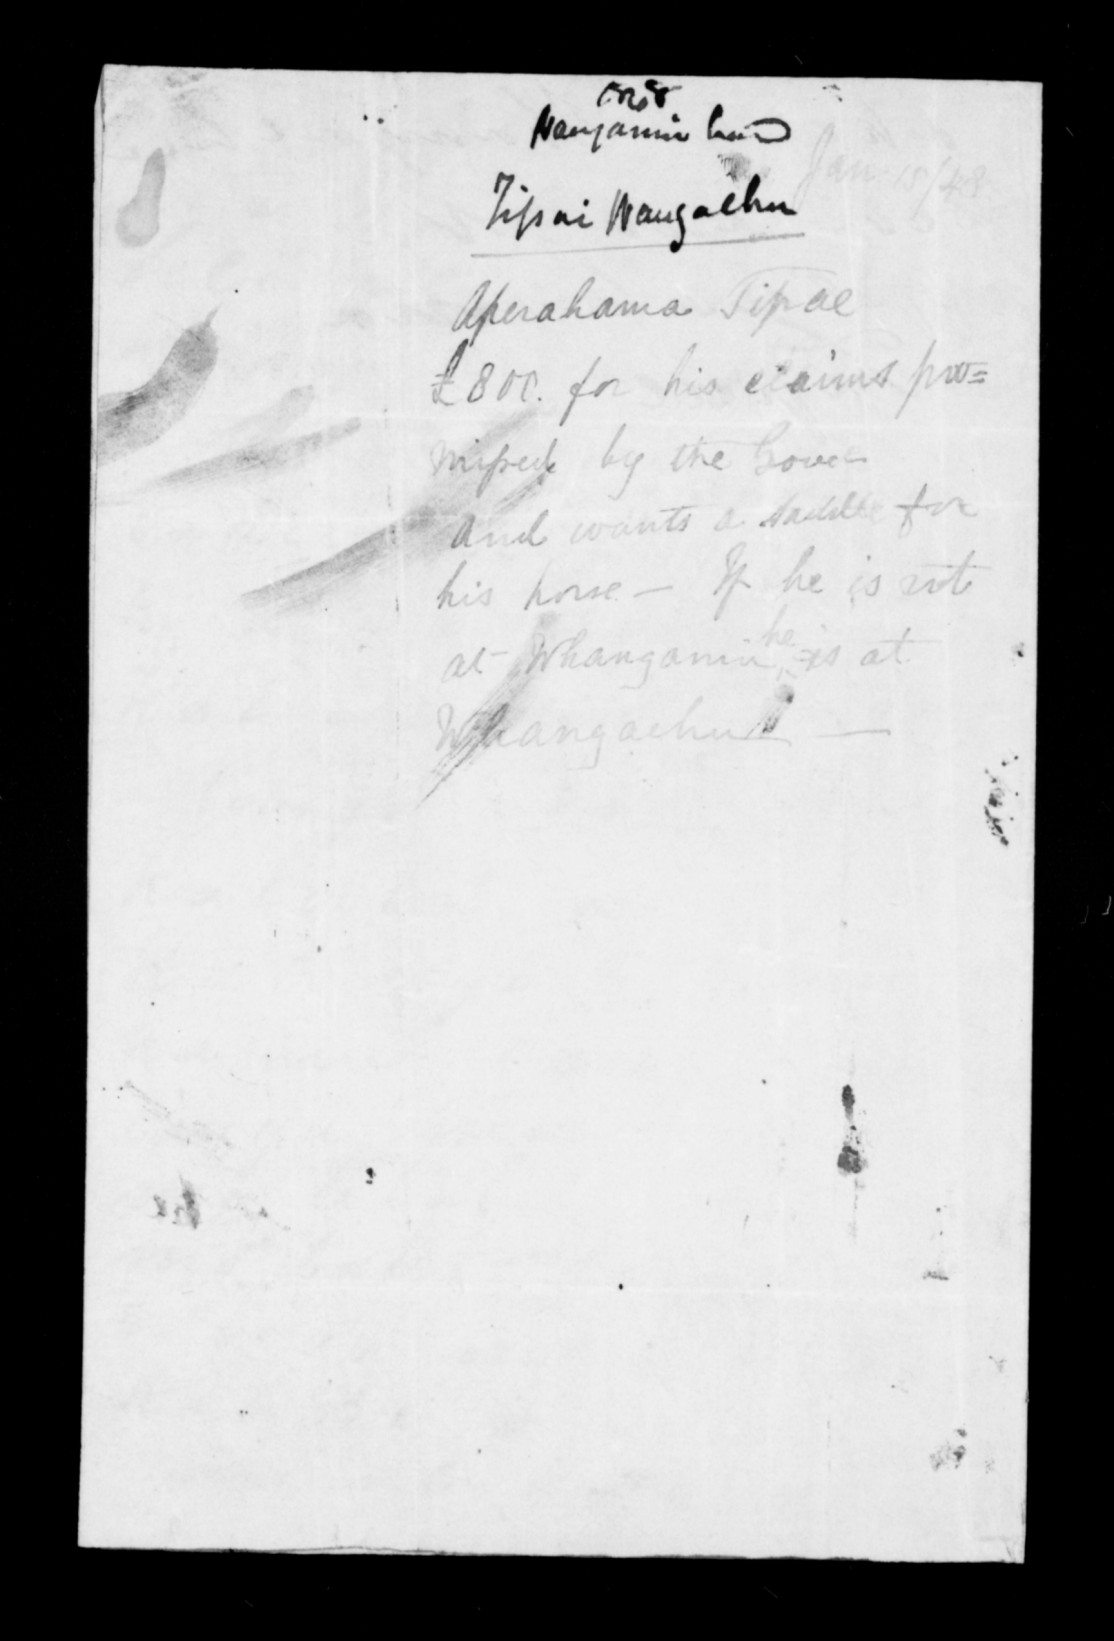 Wanganui Land
Jan 18/48
Tipai Wangaehu
Aperahama Tipae
£800. for his claims pro=
mised by the Gover
and wants a saddle for
his horse — If he is not
at Whanganui he is at
Whangaehu —